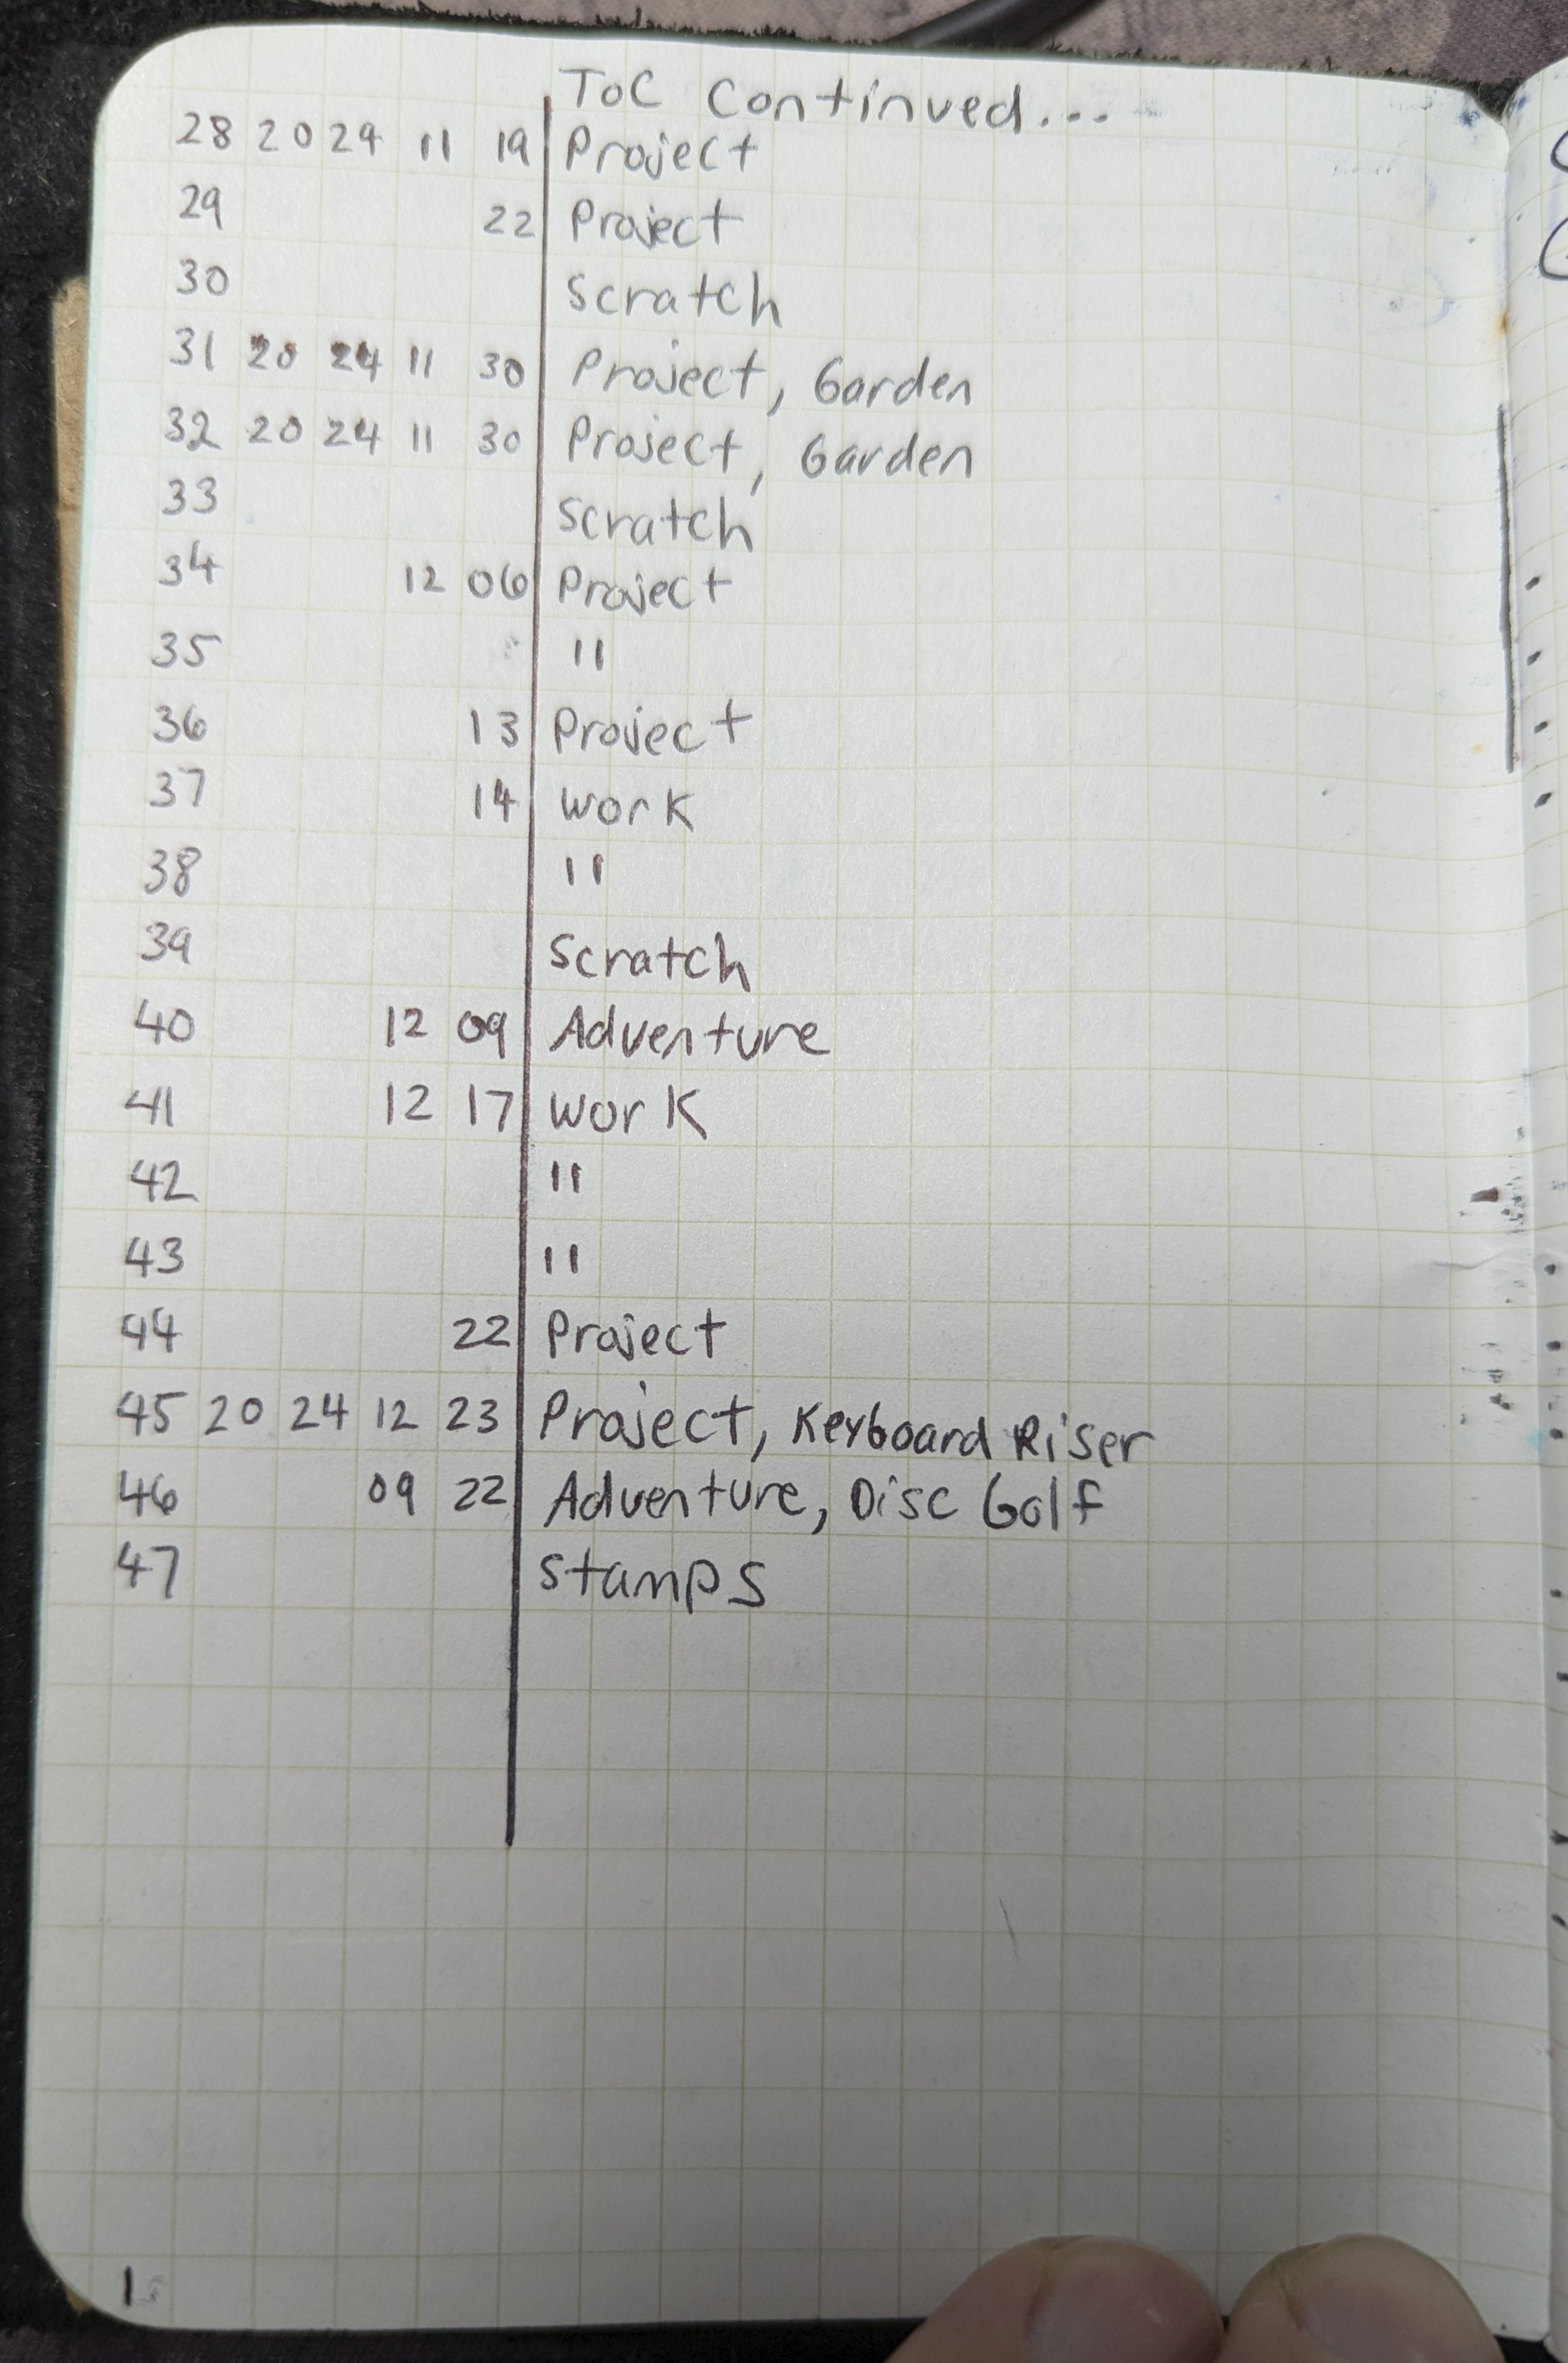 ToC Continued...
28 20 24 11 19 Project
29 22 Project
30 Scratch
31 20 24 11 30 Project, Garden
32 20 24 11 30 Project, Garden
33 Scratch
34 12 06 Project
35 "
36 13 Project
37 14 Work
38 "
39 Scratch
40 12 09 Adventure
41 12 17 Work
42 "
43 "
44 22 Project
45 20 24 12 23 Project, Keyboard Riser
46 09 22 Adventure, Disc Golf
47 Stamps
1